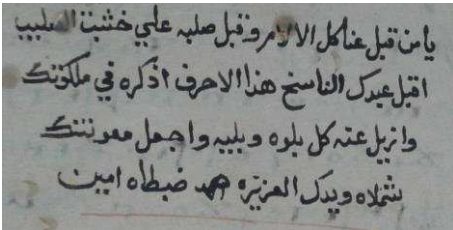 يا من قبل عنا كل الالام وقبل صلبه علي خشبت الصليب
اقبل عبدك الناسخ هذا الاحرف اذكره في ملكوتك
وازيل عنه كل بلوه وبليه واجعل معونتك
تشملاه ويدك العزيزه ضبطاه امين